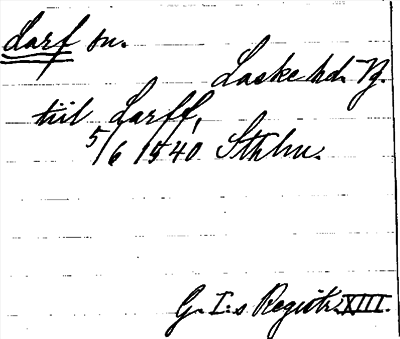 Larf sn.
Laske hd. Vg.
till Larff,
5/6 1540 Sthlm.
G. I:s Registr. XIII.